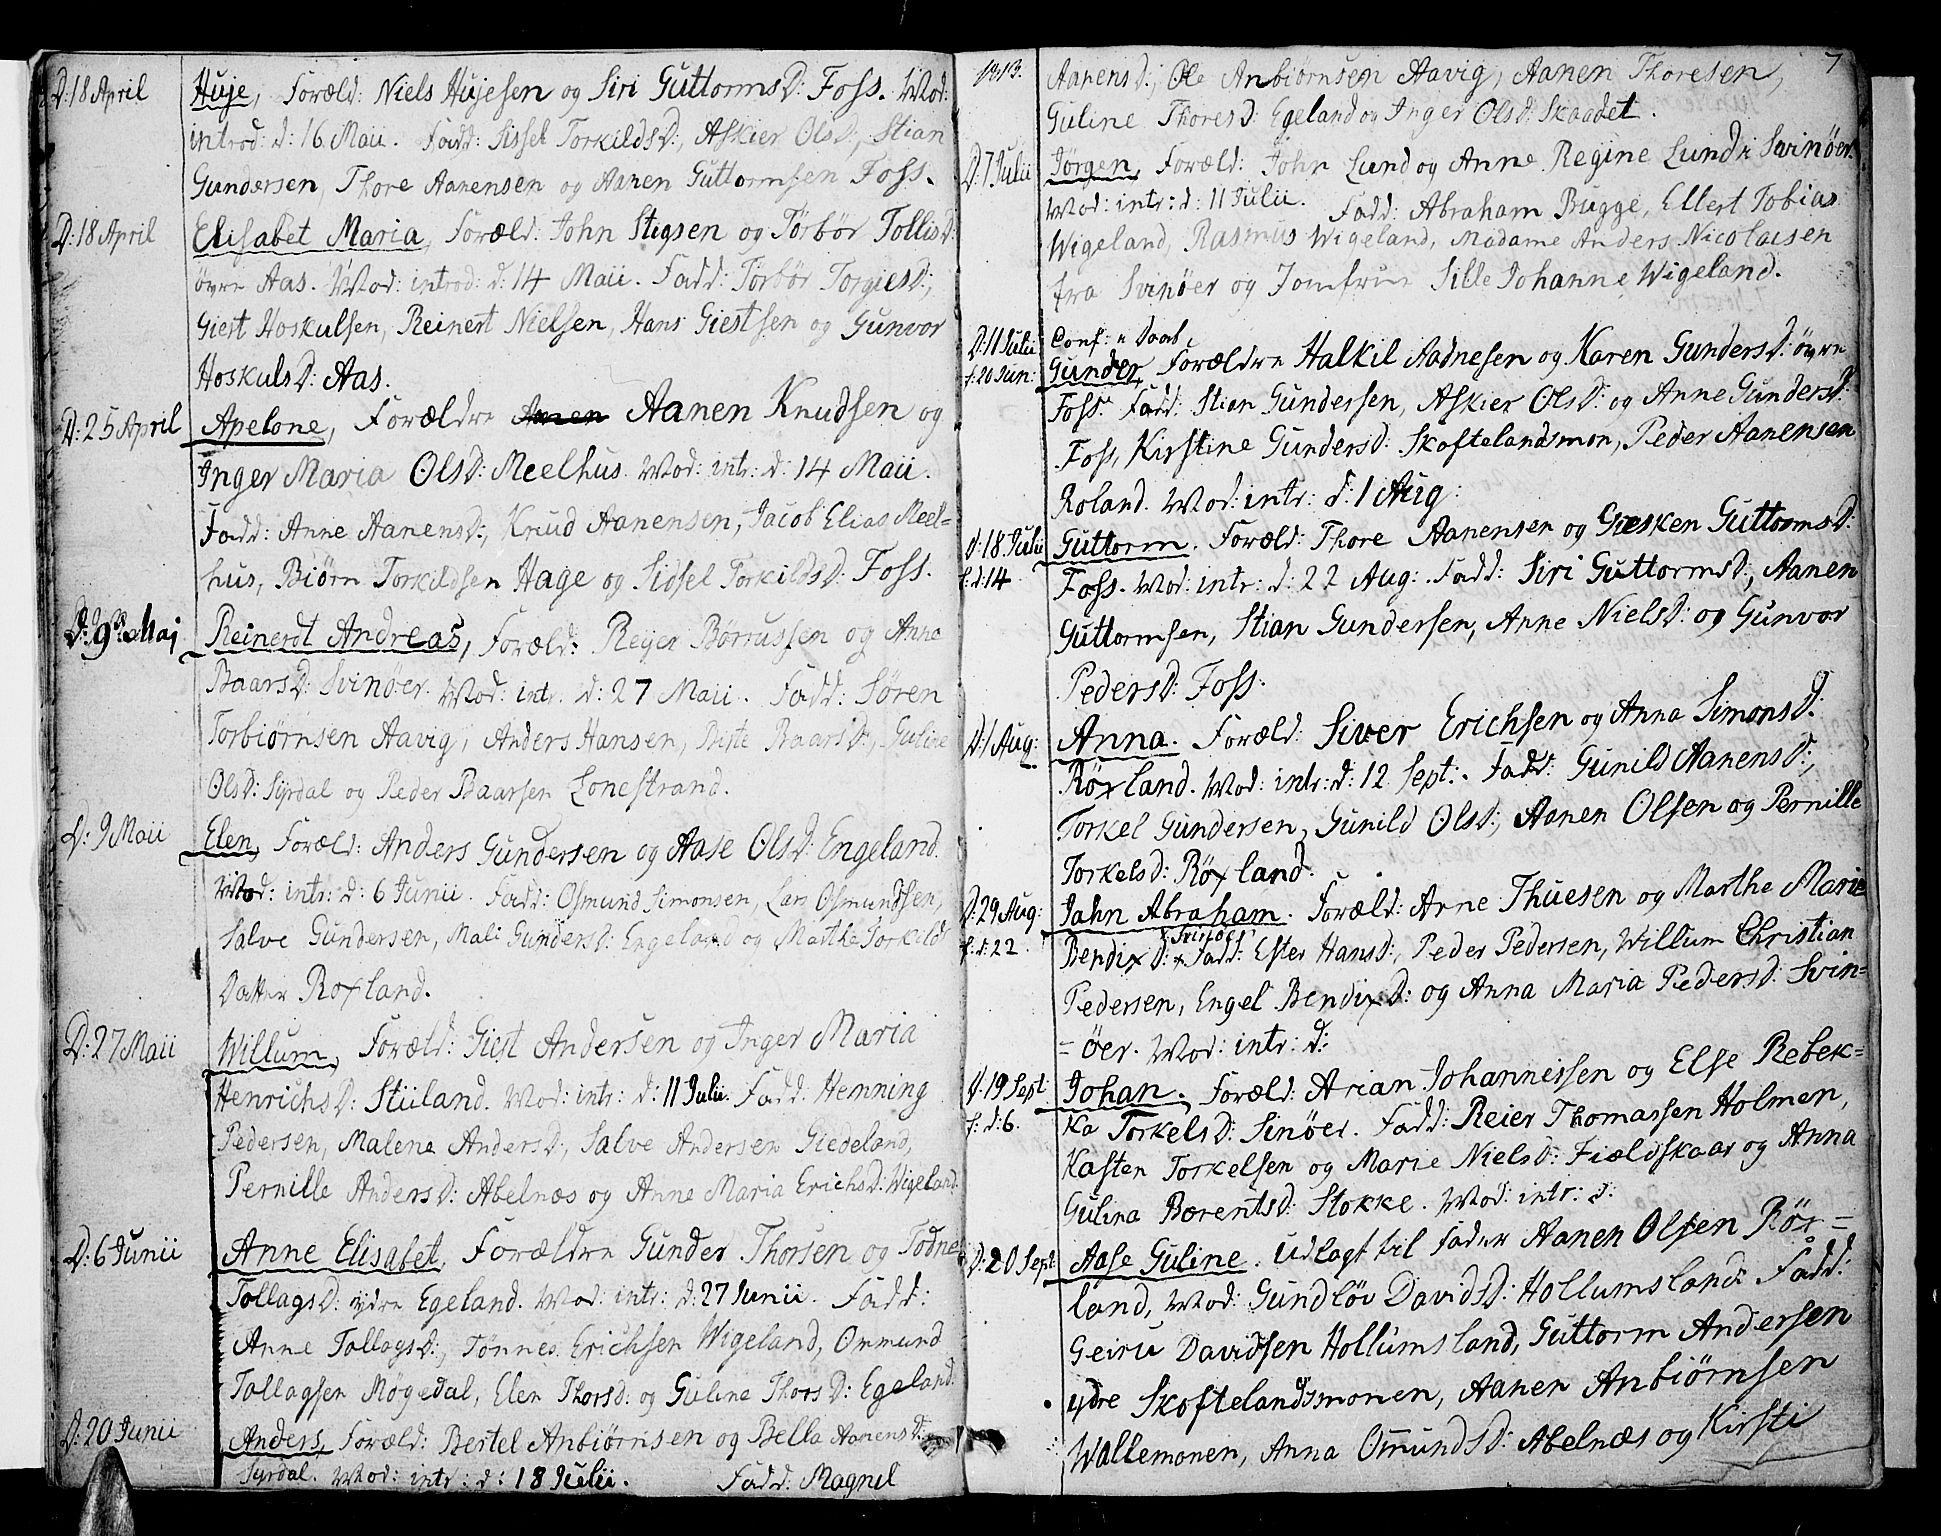 D: 18 April Huje, Foræld: Niels Hujesen og Siri GuttormsD: Foss. Mod:
introd: d: 16 Maii. Fadd: Sissel TorkildsD:, Askier OlsD:, Stian
Gundersen, Thore Aanensen og Aanen Guttormsen Foss.
D: 18 April Elisabet Maria, Foræld: John Stigsen og Törbör TollisD:
öyre Aas. Mod: introd: d: 14 Maii. Fadd: Törbör TorgiesD:,
Giest Hoskulsen, Reinert Nielsen, Hans Giestsen og Gunvor
HoskulsD: Aas.
D: 25 April Apelone, Forældre Aanen Knudsen og
Inger Maria OlsD: Meelhus. Mod: intr: d: 14 Maii.
Fadd: Anne AanensD:, Knud Aanensen, Jacob Elias Meel=
hus, Biörn Torkildsen Hage og Sidsel TorkildsD: Foss.
D: 9de Maj Reinerdt Andreas, Foræld: Reyer Börrussen og Anna
BaarsD: Svinöer. Mod: intr: d: 27 Maii. Fadd: Sören
Torbiörnsen Aavig, Anders Hansen, Birte BaarsD:, Guline
OlsD: Syrdal og Peder Baarsen Lonestrand.
D: 9 Maii Elen, Foræld: Anders Gundersen og Aase OlsD: Engeland.
Mod: intr: d: 6 Junii. Fadd: Osmund Simonsen, Lars Osmundsen,
Salve Gundersen, Mali GundersD: Engeland og Marthe Torkilds
Datter Roxland.
D: 27 Maii Willum, Foræld: Giest Andersen og Inger Maria
HenrichsD: Stüland. Mod: intr: d: 11 Julii. Fadd: Henning
Pedersen, Malene AndersD:, Salve Andersen Giedeland,
Pernille AndersD: Abelnæs og Anne Maria ErichsD: Wigeland.
D: 6 Junii Anne Elisabet, Forældre Gunder Thorsen og Todne
TollagsD: ydre Egeland. Mod: intr: d: 27 Junii. Fadd:
Anne TollagsD:, Tönnes Erichsen Wigeland, Ommund
Tollagsen Mögedal, Elen ThorsD: og Guline ThorsD: Egeland.
D: 20 Junii Anders, Foræld: Bertel Anbiörnsen og Bella AanensD:
Syrdal. Mod: intr: d: 18 Julii. Fadd: Magnil
1813. 7
AanensD:, Ole Anbiörnsen Aavig, Aanen Thoresen,
Guline ThoresD: Egeland og Inger OlsD: Skaadet.
D: 7 Julii Jörgen, Foræld: John Lund og Anne Regine Lund i Svinöer.
Mod: intr: d: 11 Julii. Fadd: Abraham Bugge, Ellert Tobias
Wigeland, Rasmus Wigeland, Madame Anders Nicolaisen
fra Svinöer og Jomfrue Sille Johanne Wigeland.
D: 11 Julii Conf: n Daab,
f: 20 Jun: Gunder, Forældre Halkil Aadnesen og Karen GundersD: öyre
Foss. Fadd: Stian Gundersen, Askier OlsD: og Anne GundersD:
Foss, Kirstine GundersD: Skoftelandsmon, Peder Aanensen
Roland. Mod: intr: d: 1 Aug:
D: 18 Julii Guttorm. Foræld: Thore Aanensen og Giesken GuttormsD:
f: d: 14 Foss. Mod: intr: d: 22 Aug: Fadd: Siri GuttormsD:, Aanen
Guttormsen, Stian Gundersen, Anne NielsD: og Gunvor
PedersD: Foss.
D: 1 Aug: Anna. Foræld: Siver Erichsen og Anna SimonsD:
Röxland. Mod: intr: d: 12 Sept:. Fadd: Gunild AanensD:,
Torkel Gundersen, Gunild OlsD:, Aanen Olsen og Pernille
TorkelsD: Röxland.
D: 29 Aug: Jahn Abraham. Foræld: Arne Thuesen og Marthe Marie
f: d: 22 BendixD: x Svinöer, x Fadd: Ester HansD:, Peder Pedersen, Willum Christian
Pedersen, Engel BendixD: og Anna Maria PedersD: Svin=
=öer. Mod: intr: d:
D: 19 Sept: Johan. Foræld: Arian Johannessen og Else Rebek=
f: d: 6. ka TorkelsD: Sinöer. Fadd: Reier Thomassen Holmen,
Kasten Torkelsen og Marie NielsD: Fieldskaar og Anna
Gulina BorentsD: Stokke. Mod: intr: d:
D: 20 Sept: Aase Guline. Udlagt til Fader Aanen Olsen Röx=
land, Mod: Gundlöv DavidsD: Hollumsland. Fadd:
Geiru Davidsen Hollumsland, Guttorm Andersen
ydre Skoftelandsmonen, Aanen Anbiörnsen
Wallemonen, Anna OmundsD: Abelnæs og Kirsti